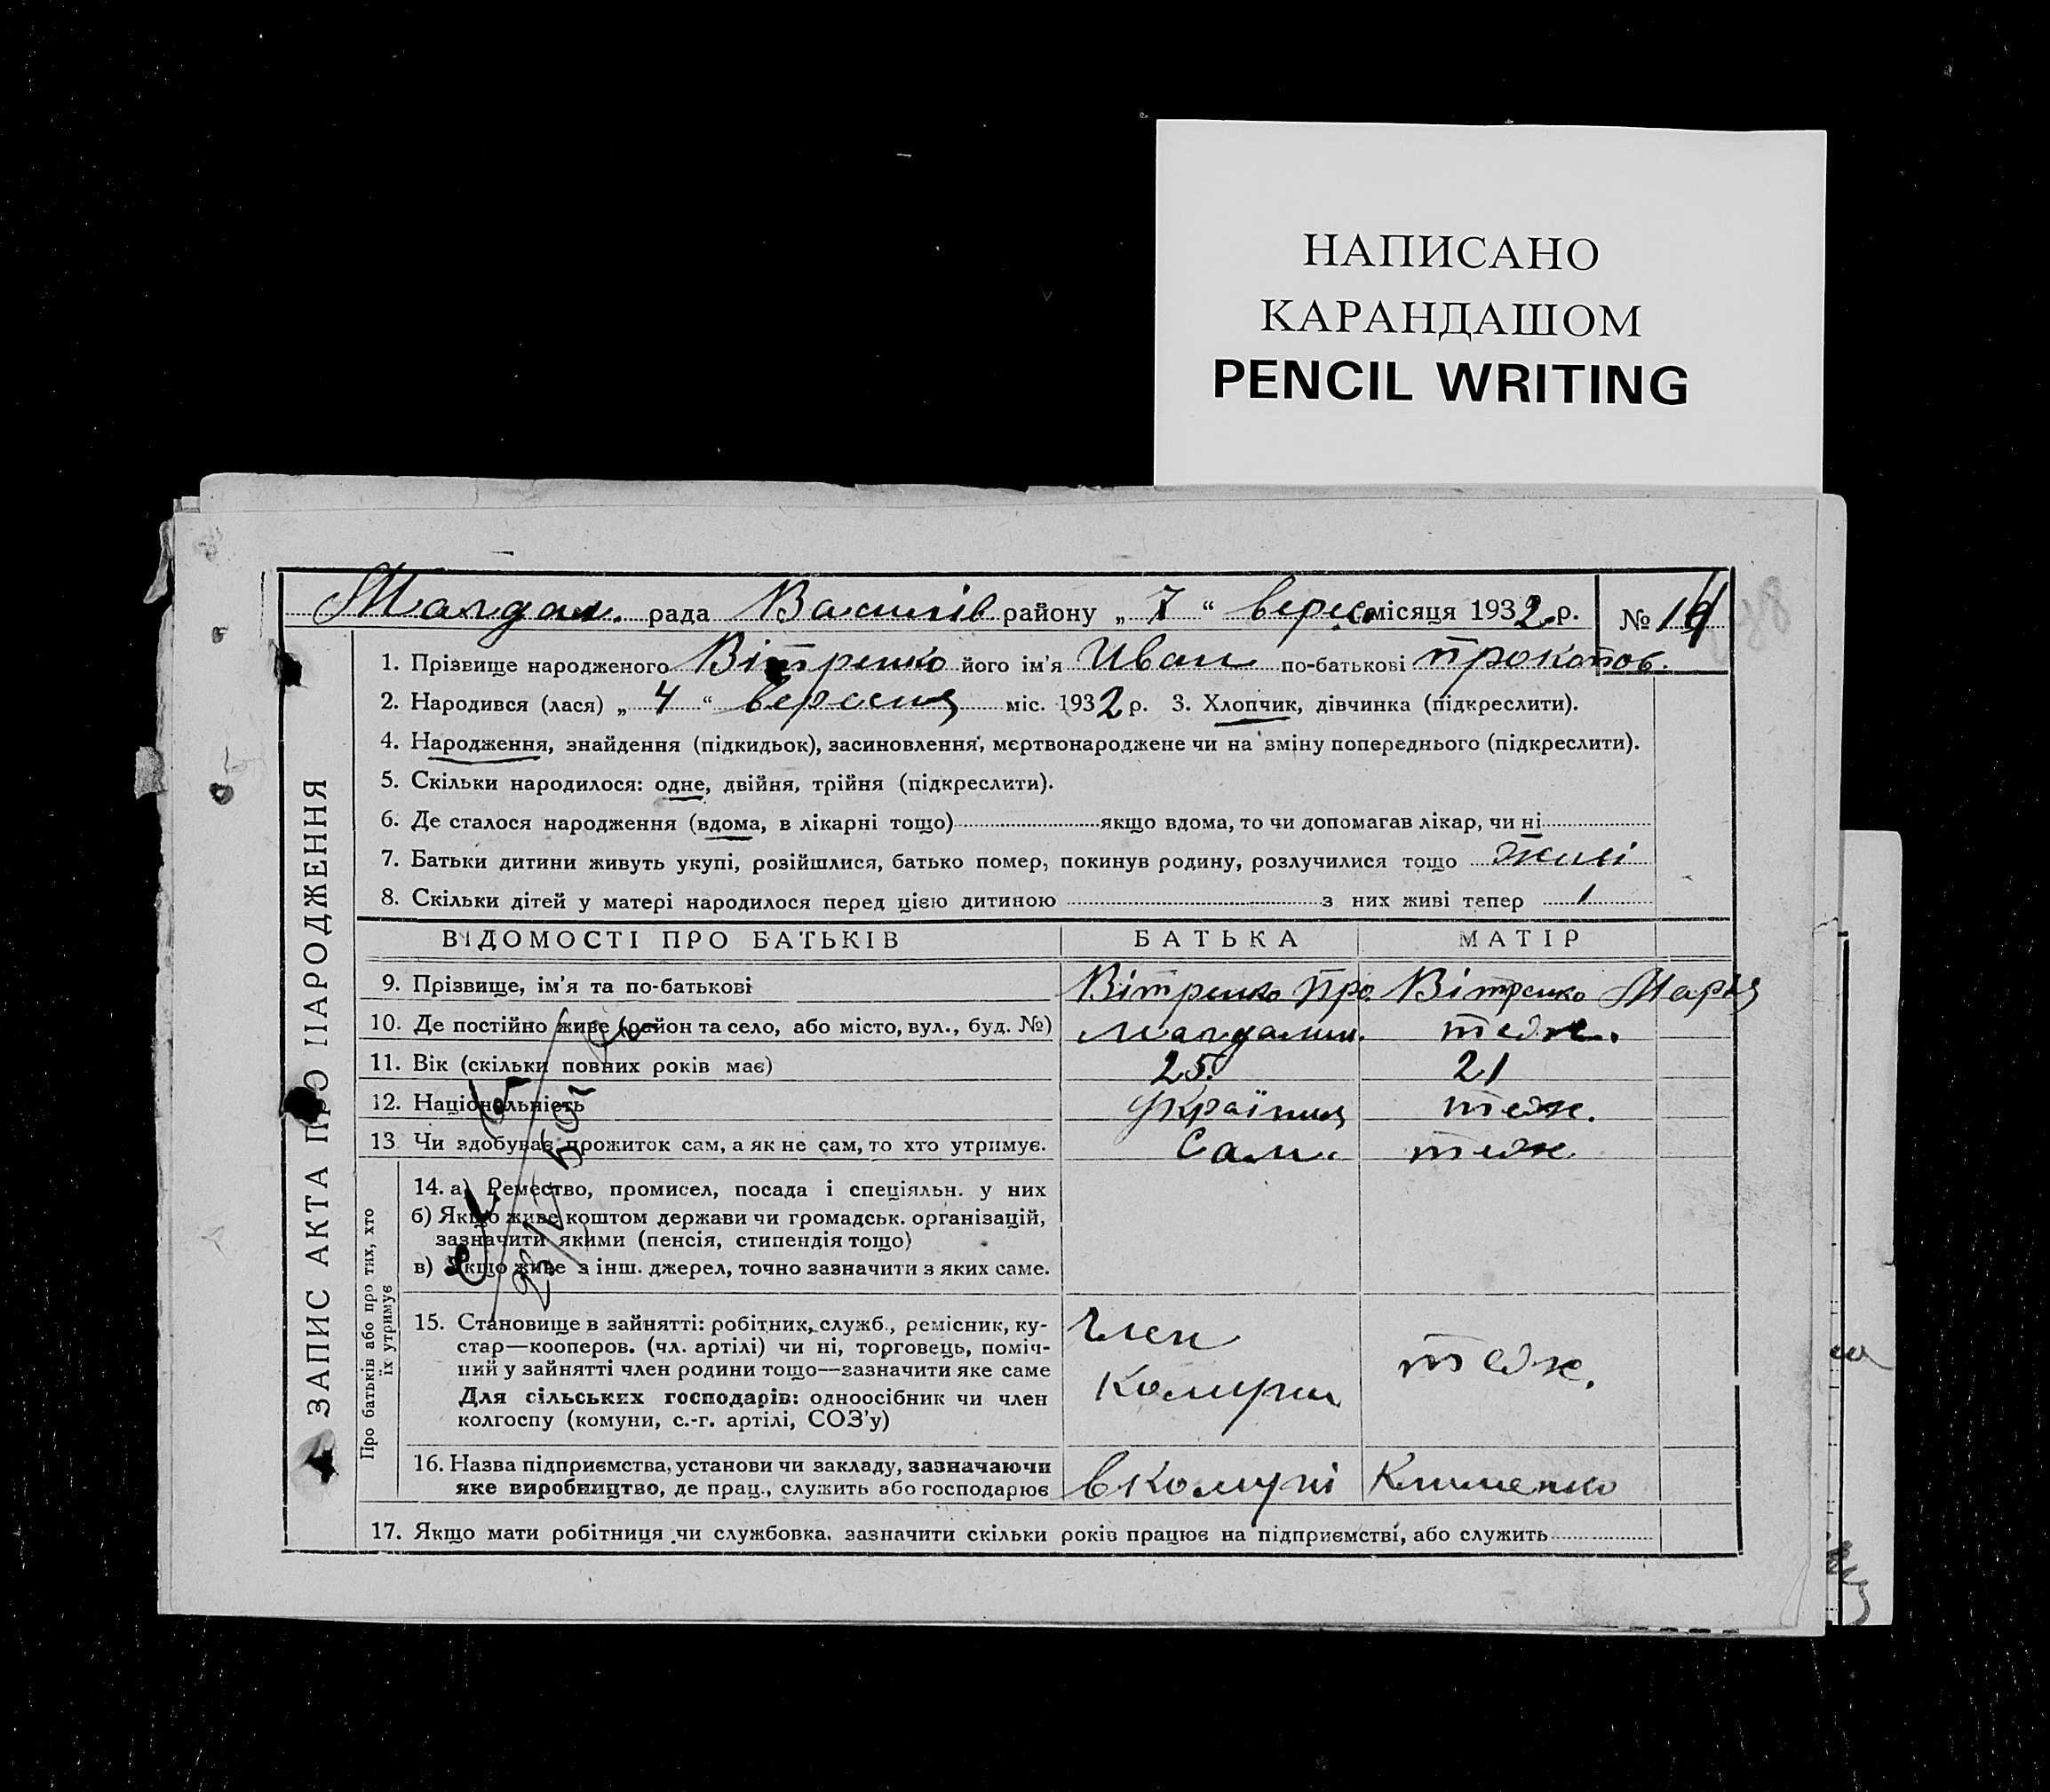 НАПИСАНО
КАРАНДАШОМ
PENCIL WRITING
Магдал. рада Василів району „ 7 “ верес місяця 1932 р. № 14
ЗАПИС АКТА ПРО НАРОДЖЕННЯ
1. Прізвище народженого Вітренко його ім'я Иван по-батькові Прокопов.
2. Народився (лася) „ 4 “ вересня міс. 1932 р. 3. Хлопчик, дівчинка (підкреслити).
4. Народження, знайдення (підкидьок), засиновлення, мертвонароджене чи на зміну попереднього (підкреслити).
5. Скільки народилося: одне, двійня, трійня (підкреслити).
6. Де сталося народження (вдома, в лікарні тощо) якщо вдома, то чи допомагав лікар, чи ні
7. Батьки дитини живуть укупі, розійшлися, батько помер, покинув родину, розлучилися тощо
8. Скільки дітей у матері народилося перед цією дитиною з них живі тепер 1
ВІДОМОСТІ ПРО БАТЬКІВ БАТЬКА МАТІР
9. Прізвище, ім'я та по-батькові Вітренко Про. Вітренко Марія
10. Де постійно живе (район та село, або місто, вул., буд. №) Магдалин. теж.
11. Вік (скільки повних років має) 25. 21
12. Національність Україниц теж.
13 Чи здобував прожиток сам, а як не сам, то хто утримує. Сам. теж
Про батьків або про тих, хто їх утримує
14. а) Ремество, промисел, посада і спеціяльн. у них
б) Якщо живе коштом держави чи громадськ. організацій,
зазначити якими (пенсія, стипендія тощо)
в) Якщо живе з інш. джерел, точно зазначити з яких саме.
15. Становище в зайнятті: робітник, служб., ремісник, ку-
стар—кооперов. (чл. артілі) чи ні, торговець, поміч-
ний у зайнятті член родини тощо—зазначити яке саме
Для сільських господарів: одноосібник чи член
колгоспу (комуни, с.-г. артілі, СОЗ'у)
Член
Комуни
теж.
16. Назва підприємства, установи чи закладу, зазначаючи
яке виробництво, де прац., служить або господарює
в комуні Клименко
17. Якщо мати робітниця чи службовка, зазначити скільки років працює на підприємстві, або служить